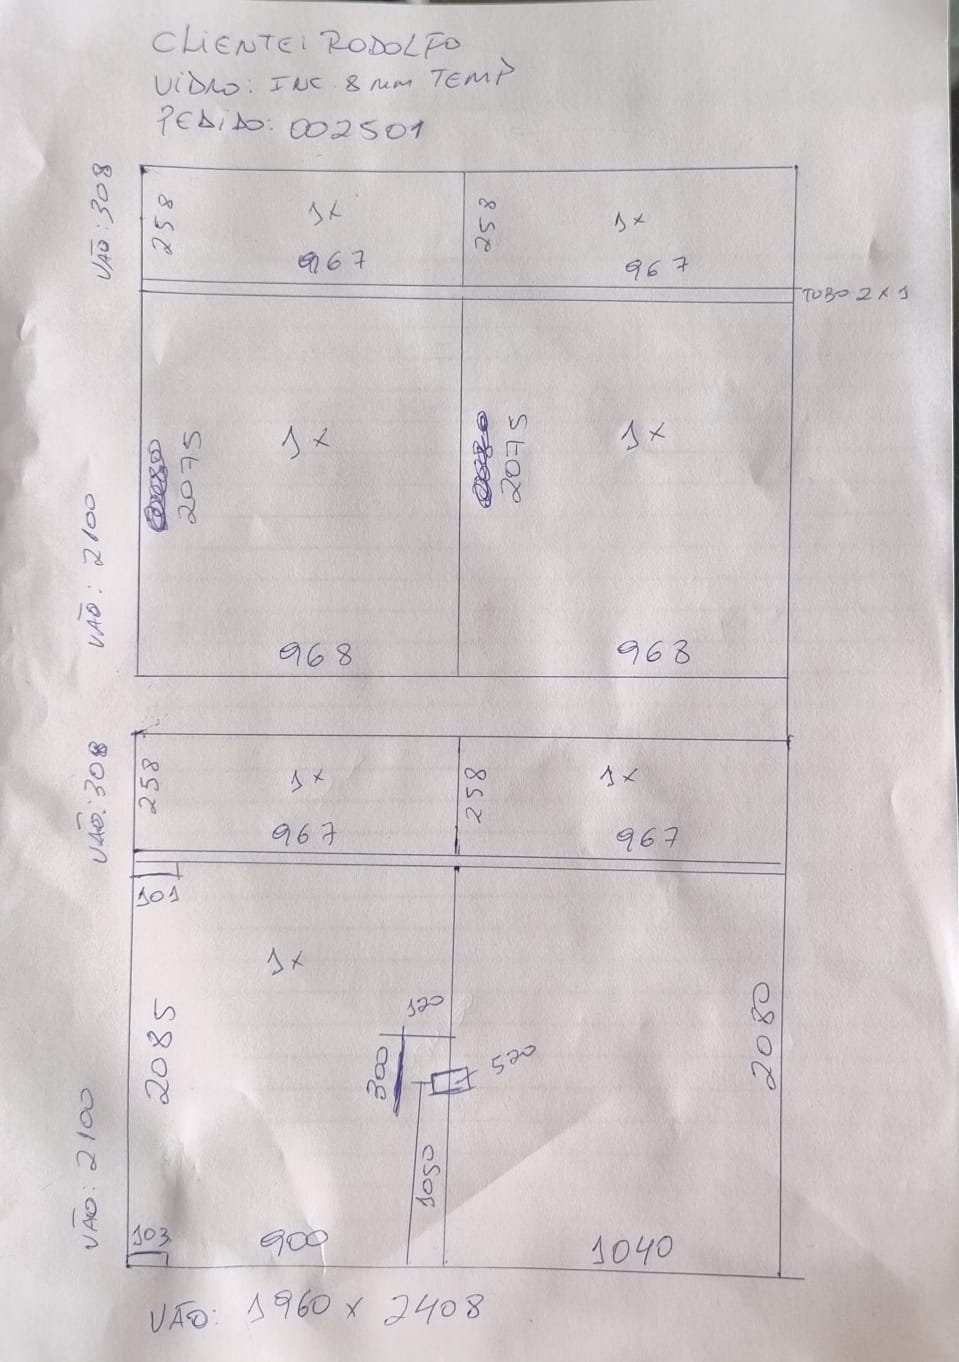 CLIENTE: RODOLFO
VIDRO: INC 8 mm TEMP
PEDIDO: 002501
VÃO: 308
258
1x
967
258
1x
967
TUBO 2 x 1
VÃO: 2100
2075
1x
968
2075
1x
968
VÃO: 308
258
1x
967
258
1x
967
101
VÃO: 2100
2085
1x
120
300
520
1050
2080
103
900
1040
VÃO: 1960 x 2408